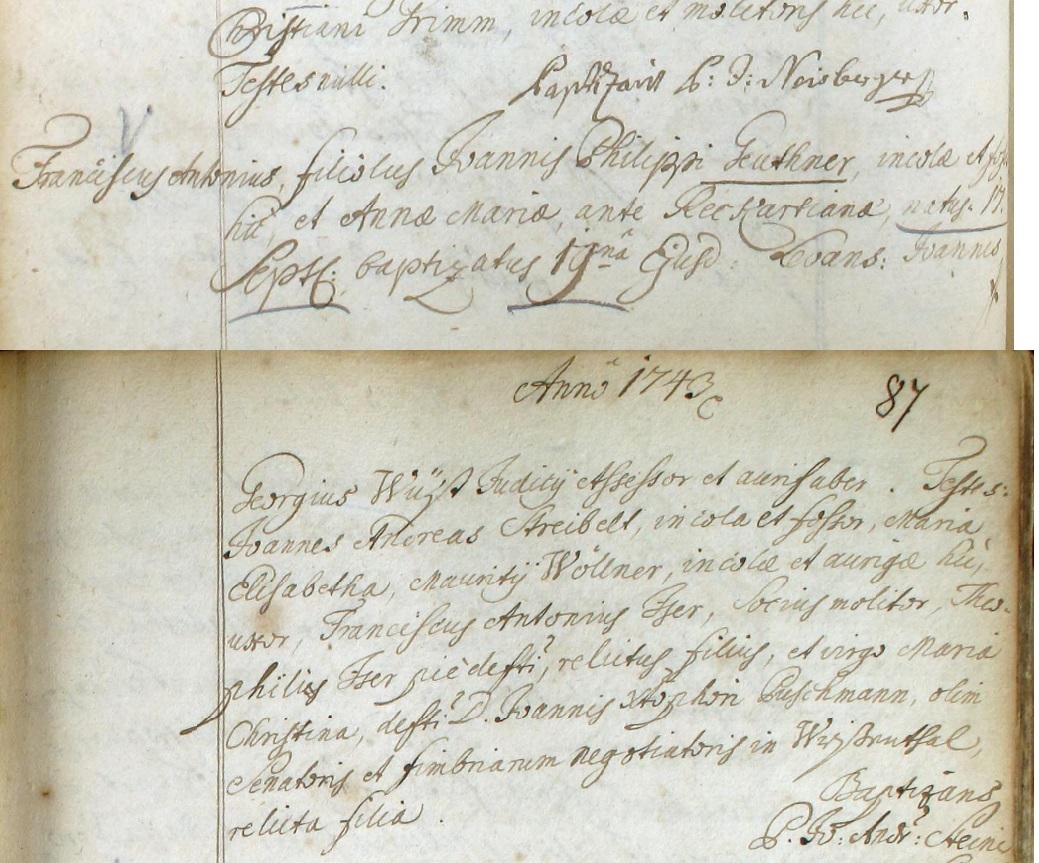 Christiani Grimm, incolæ et molitoris hic, uxor.
Testes nulli. Baptizavit P: J: Neisberger
Franciscus Antonius, filiolus Joannis Philippi Geuthner, incolæ et
hic, et Annæ Mariæ, ante Reckartianæ, natus 17.
Septb: baptizatus 19na Ejusd: Levans: Joannes
Anno 1743
87
Georgius Wüst Judicij Assessor et aurifaber. Testes:
Joannes Andreas Streibelt, incola et fossor, Maria
Elisabetha, Mauritij Wöllner, incolæ et aurigæ hic,
uxor, Franciscus Antonius Iser, socius molitor, Theo-
philij Iser pie defti, relictus filius, et virgo Maria
Christina, defti D. Joannis Xtophori Puschmann, olim
Senatoris et fimbriarum negotiatoris in Wisenthal,
relicta filia. Baptizans
P. Jo: Andr: Heine